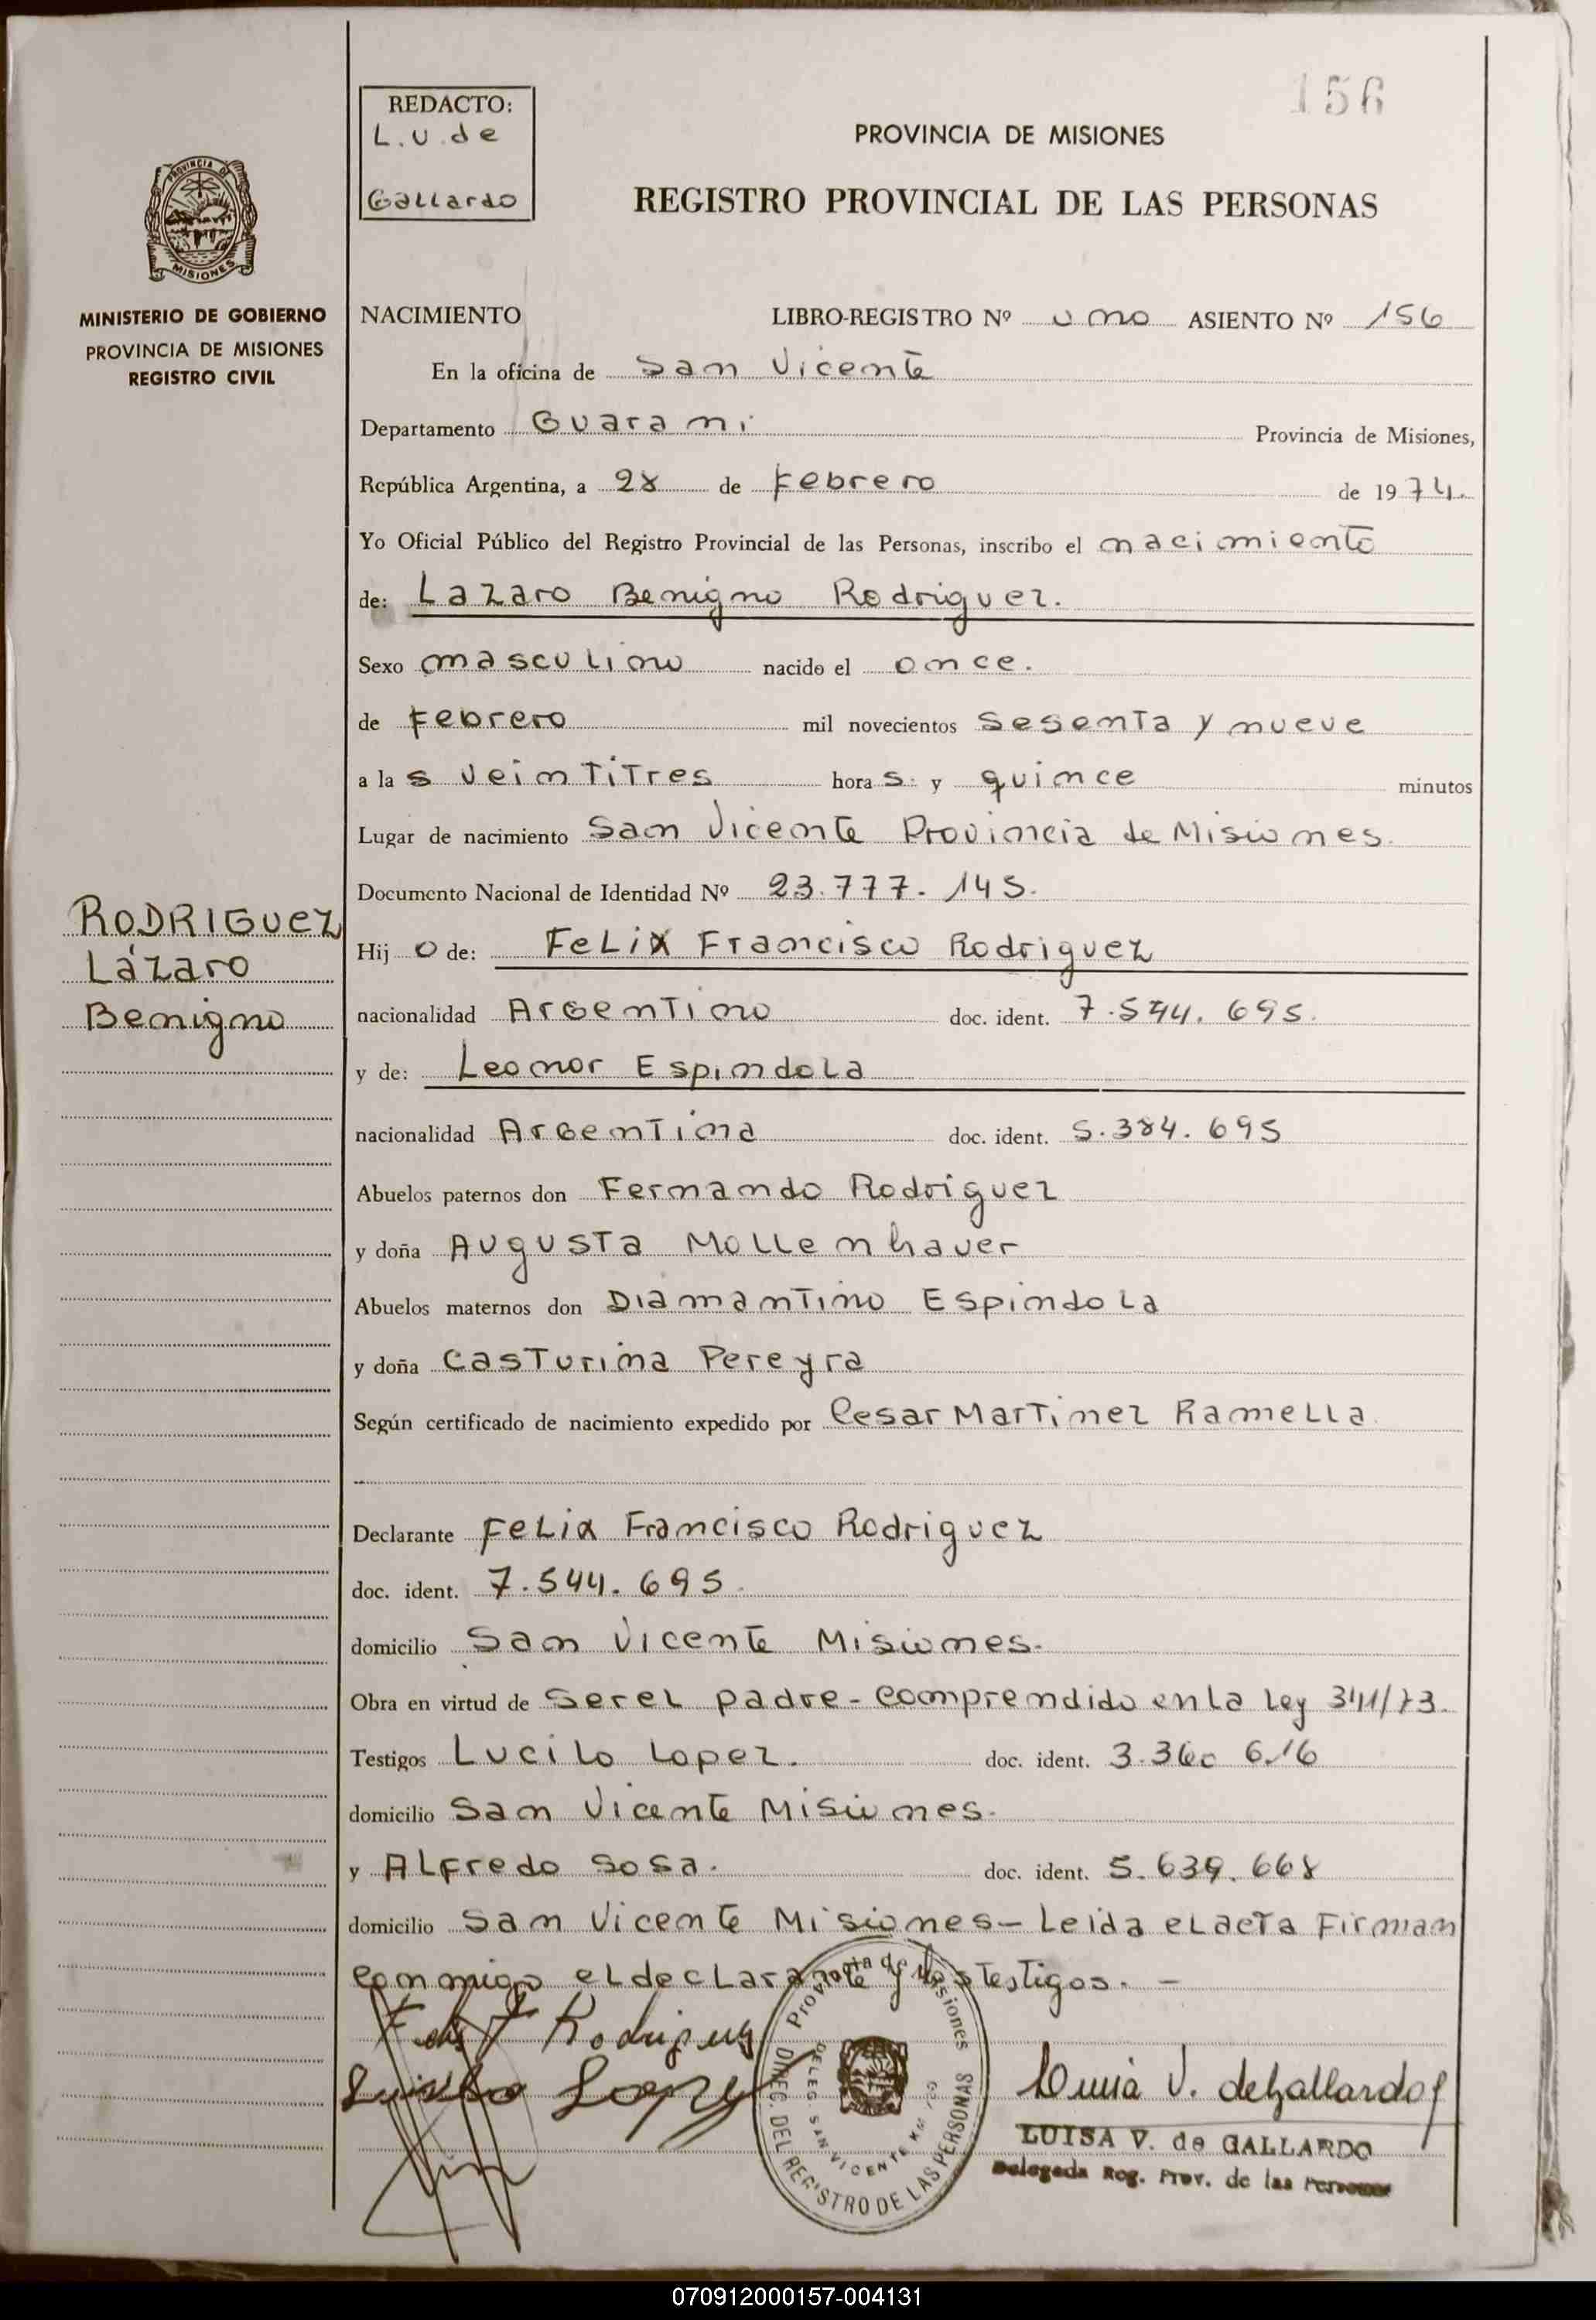 156
REDACTO:
L.V. de
Gallardo
PROVINCIA DE MISIONES
REGISTRO PROVINCIAL DE LAS PERSONAS
PROVINCIA DE
MISIONES
MINISTERIO DE GOBIERNO
PROVINCIA DE MISIONES
REGISTRO CIVIL
NACIMIENTO LIBRO-REGISTRO Nº uno ASIENTO Nº 156
En la oficina de San Vicente
Departamento Guarani Provincia de Misiones,
República Argentina, a 28 de Febrero de 1974.
Yo Oficial Público del Registro Provincial de las Personas, inscribo el nacimiento
de: Lazaro Benigno Rodriguez.
Sexo masculino nacido el once.
de Febrero mil novecientos sesenta y nueve
a las veintitres horas y quince minutos
Lugar de nacimiento San Vicente Provincia de Misiones.
Documento Nacional de Identidad Nº 23.777.145.
RODRIGUEZ
Lázaro
Benigno
Hijo de: Felix Francisco Rodriguez
nacionalidad Argentino doc. ident. 7.544.695.
y de: Leonor Espindola
nacionalidad Argentina doc. ident. 5.384.695
Abuelos paternos don Fernando Rodriguez
y doña Augusta Mollenhauer
Abuelos maternos don Diamantino Espindola
y doña Casturina Pereyra
Según certificado de nacimiento expedido por Cesar Martinez Ramella.
Declarante Felix Francisco Rodriguez
doc. ident. 7.544.695.
domicilio San Vicente Misiones.
Obra en virtud de ser el padre - comprendido en la Ley 341/73.
Testigos Lucilo Lopez. doc. ident. 3.360 616
domicilio San Vicente Misiones.
y Alfredo Sosa. doc. ident. 5.639.668
domicilio San Vicente Misiones - Leida el acta Firman
conmigo el declarante y los testigos. -
Felix F Rodriguez
Lucilo Lopez
Provincia de Misiones
DIREC. DEL REGISTRO DE LAS PERSONAS
DELEG. SAN VICENTE KM
Luisa V. de Gallardo
LUISA V. de GALLARDO
Delegada Reg. Prov. de las Personas
070912000157-004131